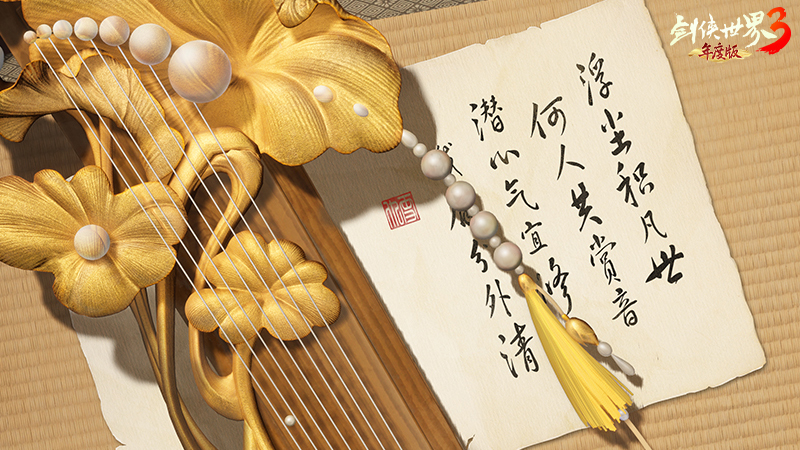 浮尘积凡世
何人共赏音
潜心气宜修
分外清
剑侠世界3
年度版